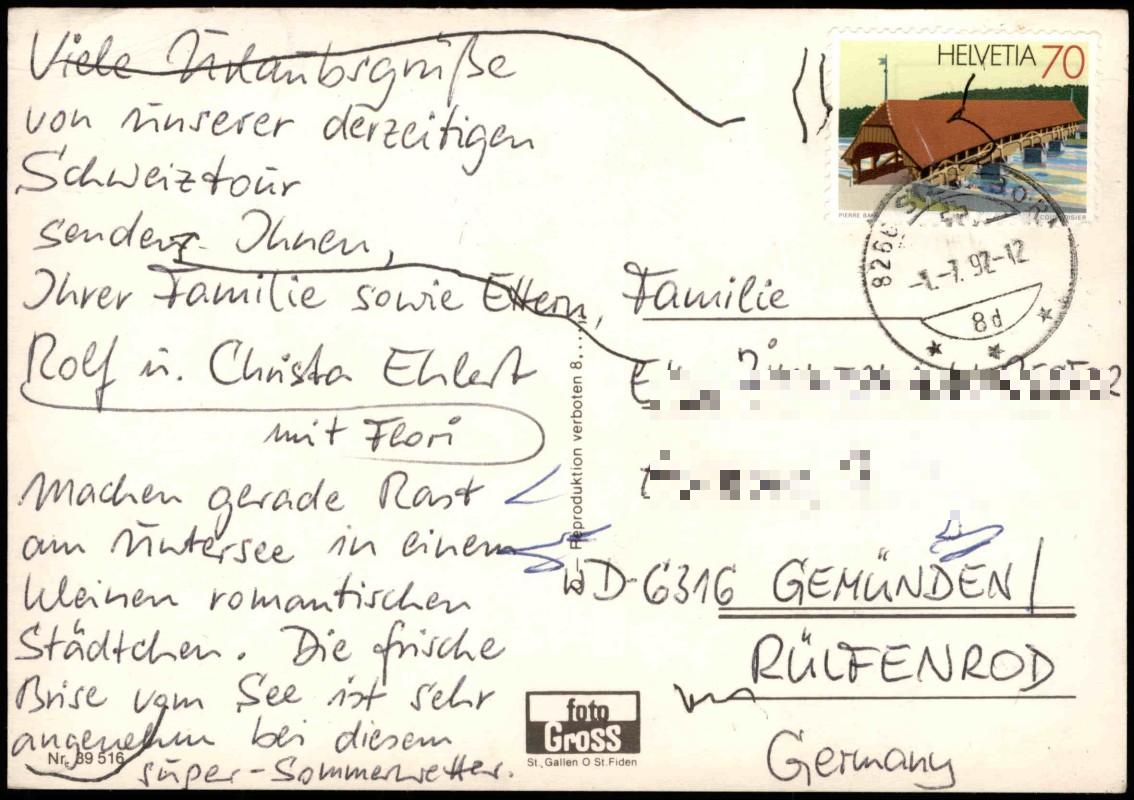 Viele Urlaubsgrüße
von unserer derzeitigen
Schweiztour
senden Ihnen,
Ihrer Familie sowie Eltern,
Rolf u. Christa Ehlert
mit Flori
Machen gerade Rast
am Untersee in einem
kleinen romantischen
Städtchen. Die frische
Brise vom See ist sehr
angenehm bei diesem
super-Sommerwetter.
Nr. 39 516
– Reproduktion verboten 8....
foto
Gross
St. Gallen O St. Fiden
HELVETIA 70
PIERRE
8266
-1.-7.92-12
8d
Familie
WD-6316 GEMÜNDEN/
RÜLFENROD
Germany